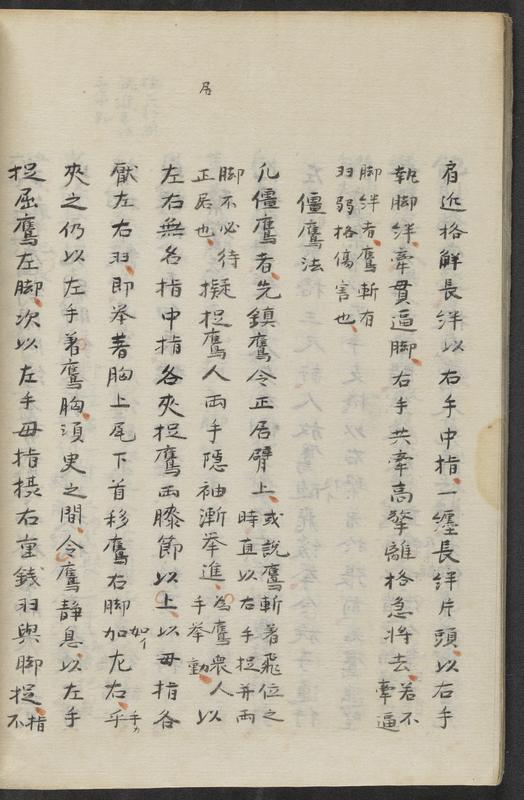 居
肩近格解長絆以右手中指一纏長絆片頭以右手
執脚絆牽貫逼脚右手共牽高擎離格急將去若不
牽逼
脚絆者鷹斬有
羽弱格傷害也
僵鷹法
凡僵鷹者先鎮鷹令正居臂上或説鷹斬著飛位之
時直以右手捉并両
脚不必待
正居也
擬捉鷹人両手隠袖漸挙進為鷹衆人以
手挙動
左右無名指中指各夾捉鷹両膝節以上以毋指各
厭左右羽即挙著胸上尾下首移鷹右脚加左右乎
夾之仍以左手著鷹胸須臾之間令鷹静息以左手
捉屈鷹左脚次以左手毋指摸右重錢羽與脚捉指
不